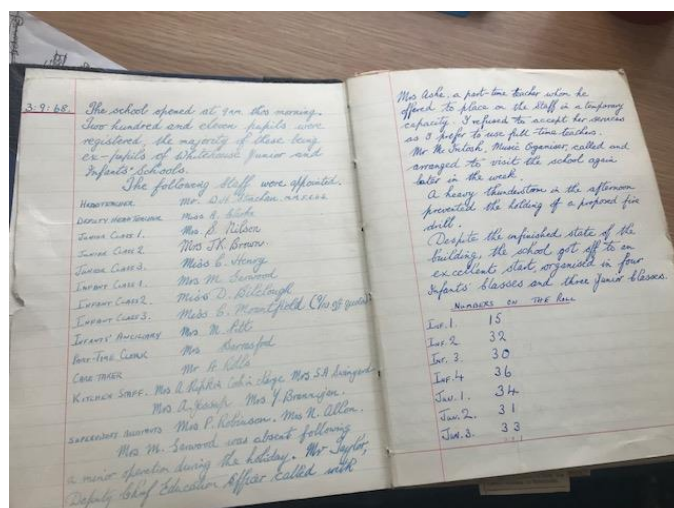 3·9·68. The school opened at 9 am this morning.
Two hundred and eleven pupils were
registered, the majority of these being
ex-pupils of Whitehouse Junior and
Infants' Schools.
The following Staff were appointed.
HEADTEACHER Mr. D.H.
DEPUTY HEADTEACHER Miss B.
JUNIOR CLASS 1. Mrs S. Nilson
JUNIOR CLASS 2 Mrs J.K. Brown.
JUNIOR CLASS 3. Miss C. Henry
INFANT CLASS 1. Mrs M. Sarwood
INFANT CLASS 2. Miss D.
INFANT CLASS 3. Miss G. Mountfield
INFANTS' AUXILIARY Mrs N.
PART-TIME CLERK Mrs Berresford
CARE TAKER Mr A.
KITCHEN STAFF. Mrs A. Cook in charge Mrs S.A.
Mrs A. Jessop Mrs Y.
SUPERVISORY ASSISTANTS Mrs P. Robinson. Mrs N. Allon.
Mrs M. Sarwood was absent following
a minor operation during the holiday. Mr Taylor,
Deputy Chief Education Officer called with
Mrs Ashe, a part-time teacher whom he
offered to place on the Staff in a temporary
capacity. I refused to accept her services
as I prefer to use full-time teachers.
Mr Mc Intosh, Music Organiser, called and
arranged to visit the school again
later in the week.
A heavy thunderstorm in the afternoon
prevented the holding of a proposed fire
drill.
Despite the unfinished state of the
building, the school got off to an
excellent start, organised in four
Infants' Classes and three Junior Classes.
NUMBERS ON THE ROLL
INF. 1. 15
INF. 2. 32
INF. 3. 30
INF. 4 36
JUN. 1. 34
JUN. 2. 31
JUN. 3. 33